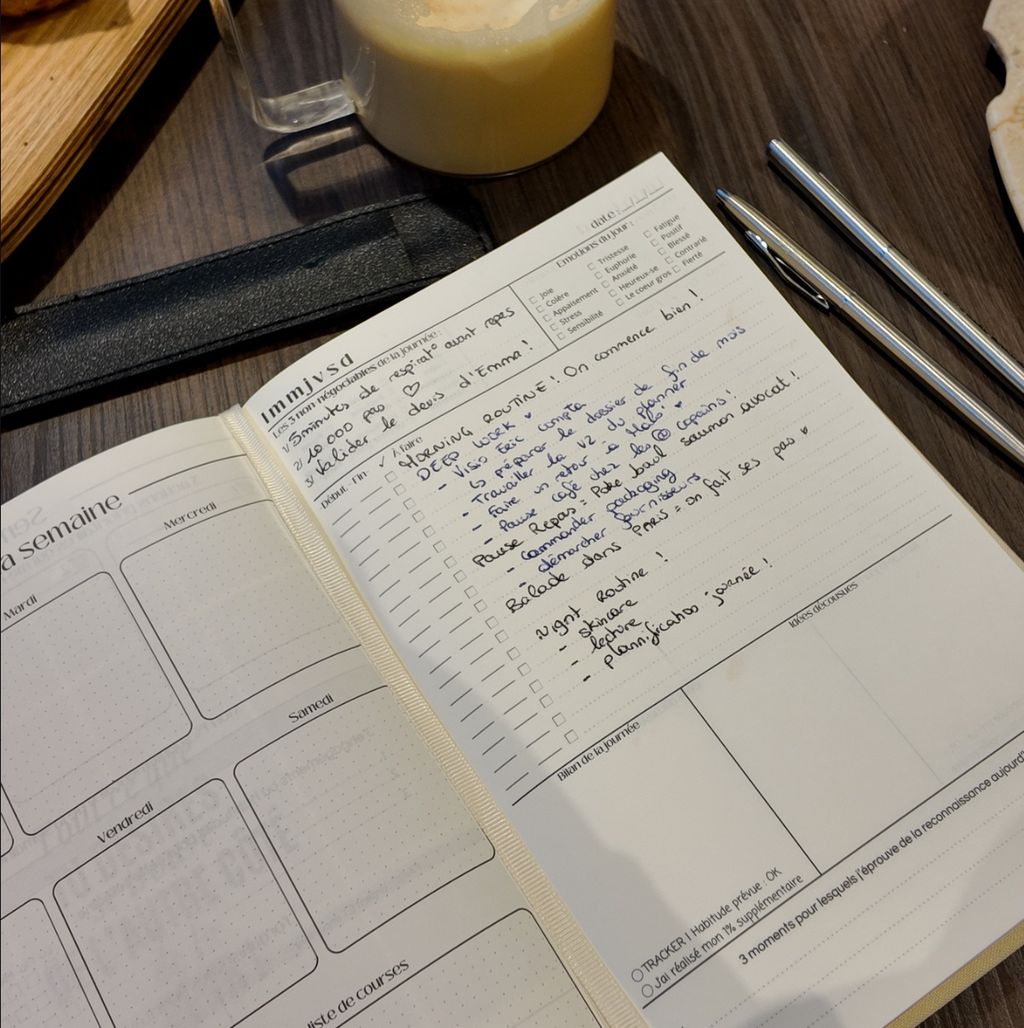 a semaine
Mardi
Mercredi
Vendredi
Samedi
liste de courses
date :
l m m j v s d
LES 3 non-négociables de la journée :
1/ 5minutes de respirat° avant repas
2/ 10 000 pas ♡
3/ Valider le devis d'Emma !
Emotions du jour :
Joie
Colère
Appaisement
Stress
Sensibilité
Tristesse
Euphorie
Anxiété
Heureux-se
Le coeur gros
Fatigue
Positif
Blessé
Contrarié
Fierté
Début - Fin - ✓ A faire
MORNING ROUTINE ! On commence bien !
DEEP WORK
- Visio Eric compta
↳ préparer le dossier de fin de mois
- Travailler la V2 du planner
- Faire un retour à Malo ♥
- Pause café chez les @ copains !
Pause Repas = Poke bowl saumon avocat !
- Commander packaging
- démarcher fournisseurs
Balade dans PARIS = on fait ses pas ♥
Night Routine !
- skincare
- lecture
- plannification journée !
Bilan de la journée
Idées décousues
TRACKER | Habitude prévue : OK
J'ai réalisé mon 1% supplémentaire
3 moments pour lesquels j'éprouve de la reconnaissance aujourd'